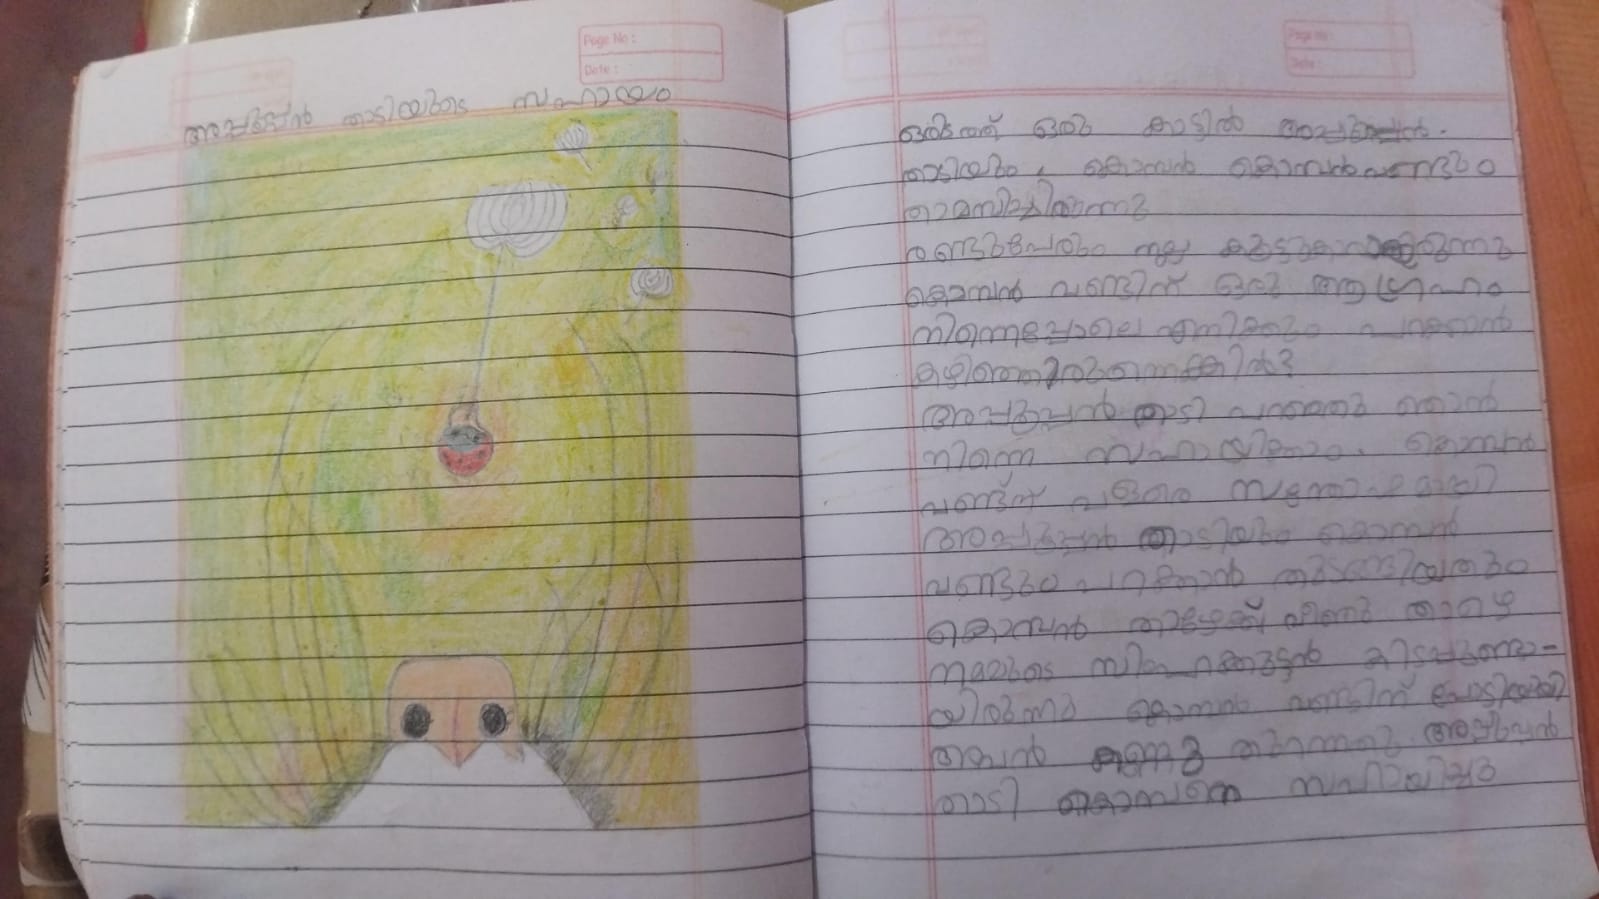 Page No :
Date :
അപ്പൂപ്പൻ താടിയുടെ സഹായം
Page No :
Date :
ഒരിടത്ത് ഒരു കാട്ടിൽ അപ്പൂപ്പൻ-
താടിയും, കൊമ്പൻ കൊമ്പൻവണ്ടും
താമസിച്ചിരുന്നു
രണ്ടുപേരും നല്ല കൂട്ടുകാരായിരുന്നു
കൊമ്പൻ വണ്ടിന് ഒരു ആഗ്രഹം
നിന്നെപ്പോലെ എനിക്കും പറക്കാൻ
കഴിഞ്ഞിരുന്നെങ്കിൽ?
അപ്പൂപ്പൻ താടി പറഞ്ഞു ഞാൻ
നിന്നെ സഹായിക്കാം. കൊമ്പൻ
വണ്ടിന് വളരെ സന്തോഷമായി
അപ്പൂപ്പൻ താടിയും കൊമ്പൻ
വണ്ടും പറക്കാൻ തുടങ്ങിയതും
കൊമ്പൻ താഴേക്ക് വീണു താഴെ
നമ്മുടെ സിംഹക്കുട്ടൻ കിടപ്പുണ്ടാ-
യിരുന്നു കൊമ്പൻ വണ്ടിന് പേടിയായി
അവൻ കണ്ണു തുറന്നു. അപ്പൂപ്പൻ
താടി കൊമ്പനെ സഹായിച്ചു